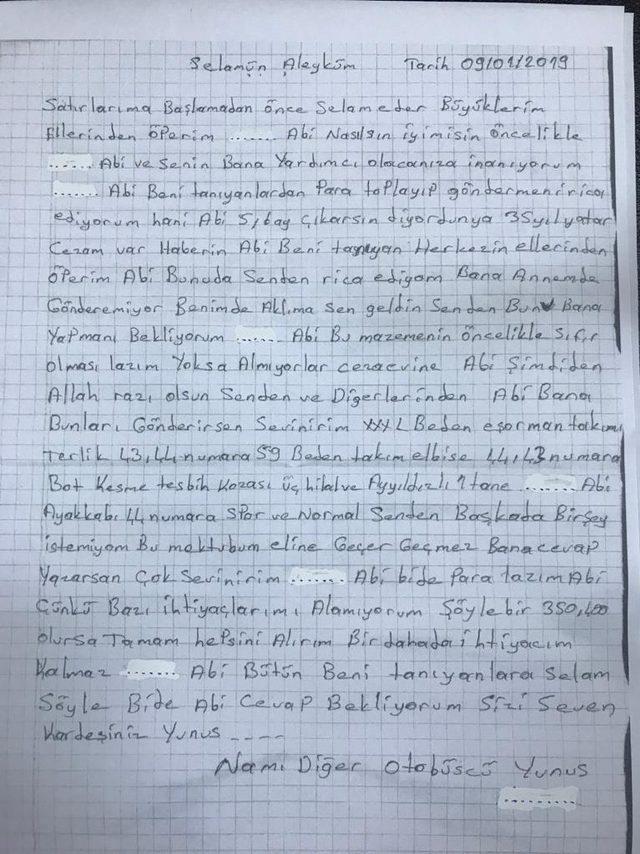 Selamün Aleyküm Tarih 09/01/2019
Satırlarıma Başlamadan önce Selameder Büyüklerim
Ellerinden öperim ....... Abi Nasılsın iyimisin öncelikle
....... Abi ve Senin Bana Yardımcı olacanıza inanıyorum
....... Abi Beni tanıyanlardan Para toplayıp göndermeni rica
ediyorum hani Abi 5,6ay çıkarsın diyordunya 35yılyatar
Cezam var Haberin Abi Beni tanıyan Herkezin ellerinden
öperim Abi Bunuda Senden rica ediyom Bana Annemde
Gönderemiyor Benimde Aklıma Sen geldin Senden Bunu Bana
Yapmanı Bekliyorum ....... Abi Bu mazemenin öncelikle Sıfır
olması lazım Yoksa Almıyorlar cezaevine Abi Şimdiden
Allah razı olsun Senden ve Diğerlerinden Abi Bana
Bunları Gönderirsen Sevinirim XXXL Beden eşorman takımı
Terlik 43,44 numara 59 Beden takım elbise 44,43 numara
Bot Kesme tesbih Kozası üç hilal ve Ayyıldızlı 1 tane ....... Abi
Ayakkabı 44 numara Spor ve Normal Senden Başkada Birşey
istemiyom Bu mektubum eline Geçer Geçmez Bana cevap
Yazarsan Çok Sevinirim ....... Abi bide Para lazım Abi
Çünkü Bazı ihtiyaçlarımı Alamıyorum Şöyle bir 350,400
olursa Tamam hepsini Alırım Bir dahada ihtiyacım
Kalmaz ....... Abi Bütün Beni tanıyanlara Selam
Söyle Bide Abi Cevap Bekliyorum Sizi Seven
Kardeşiniz Yunus ----
Namı Diğer Otobüscü Yunus
.........